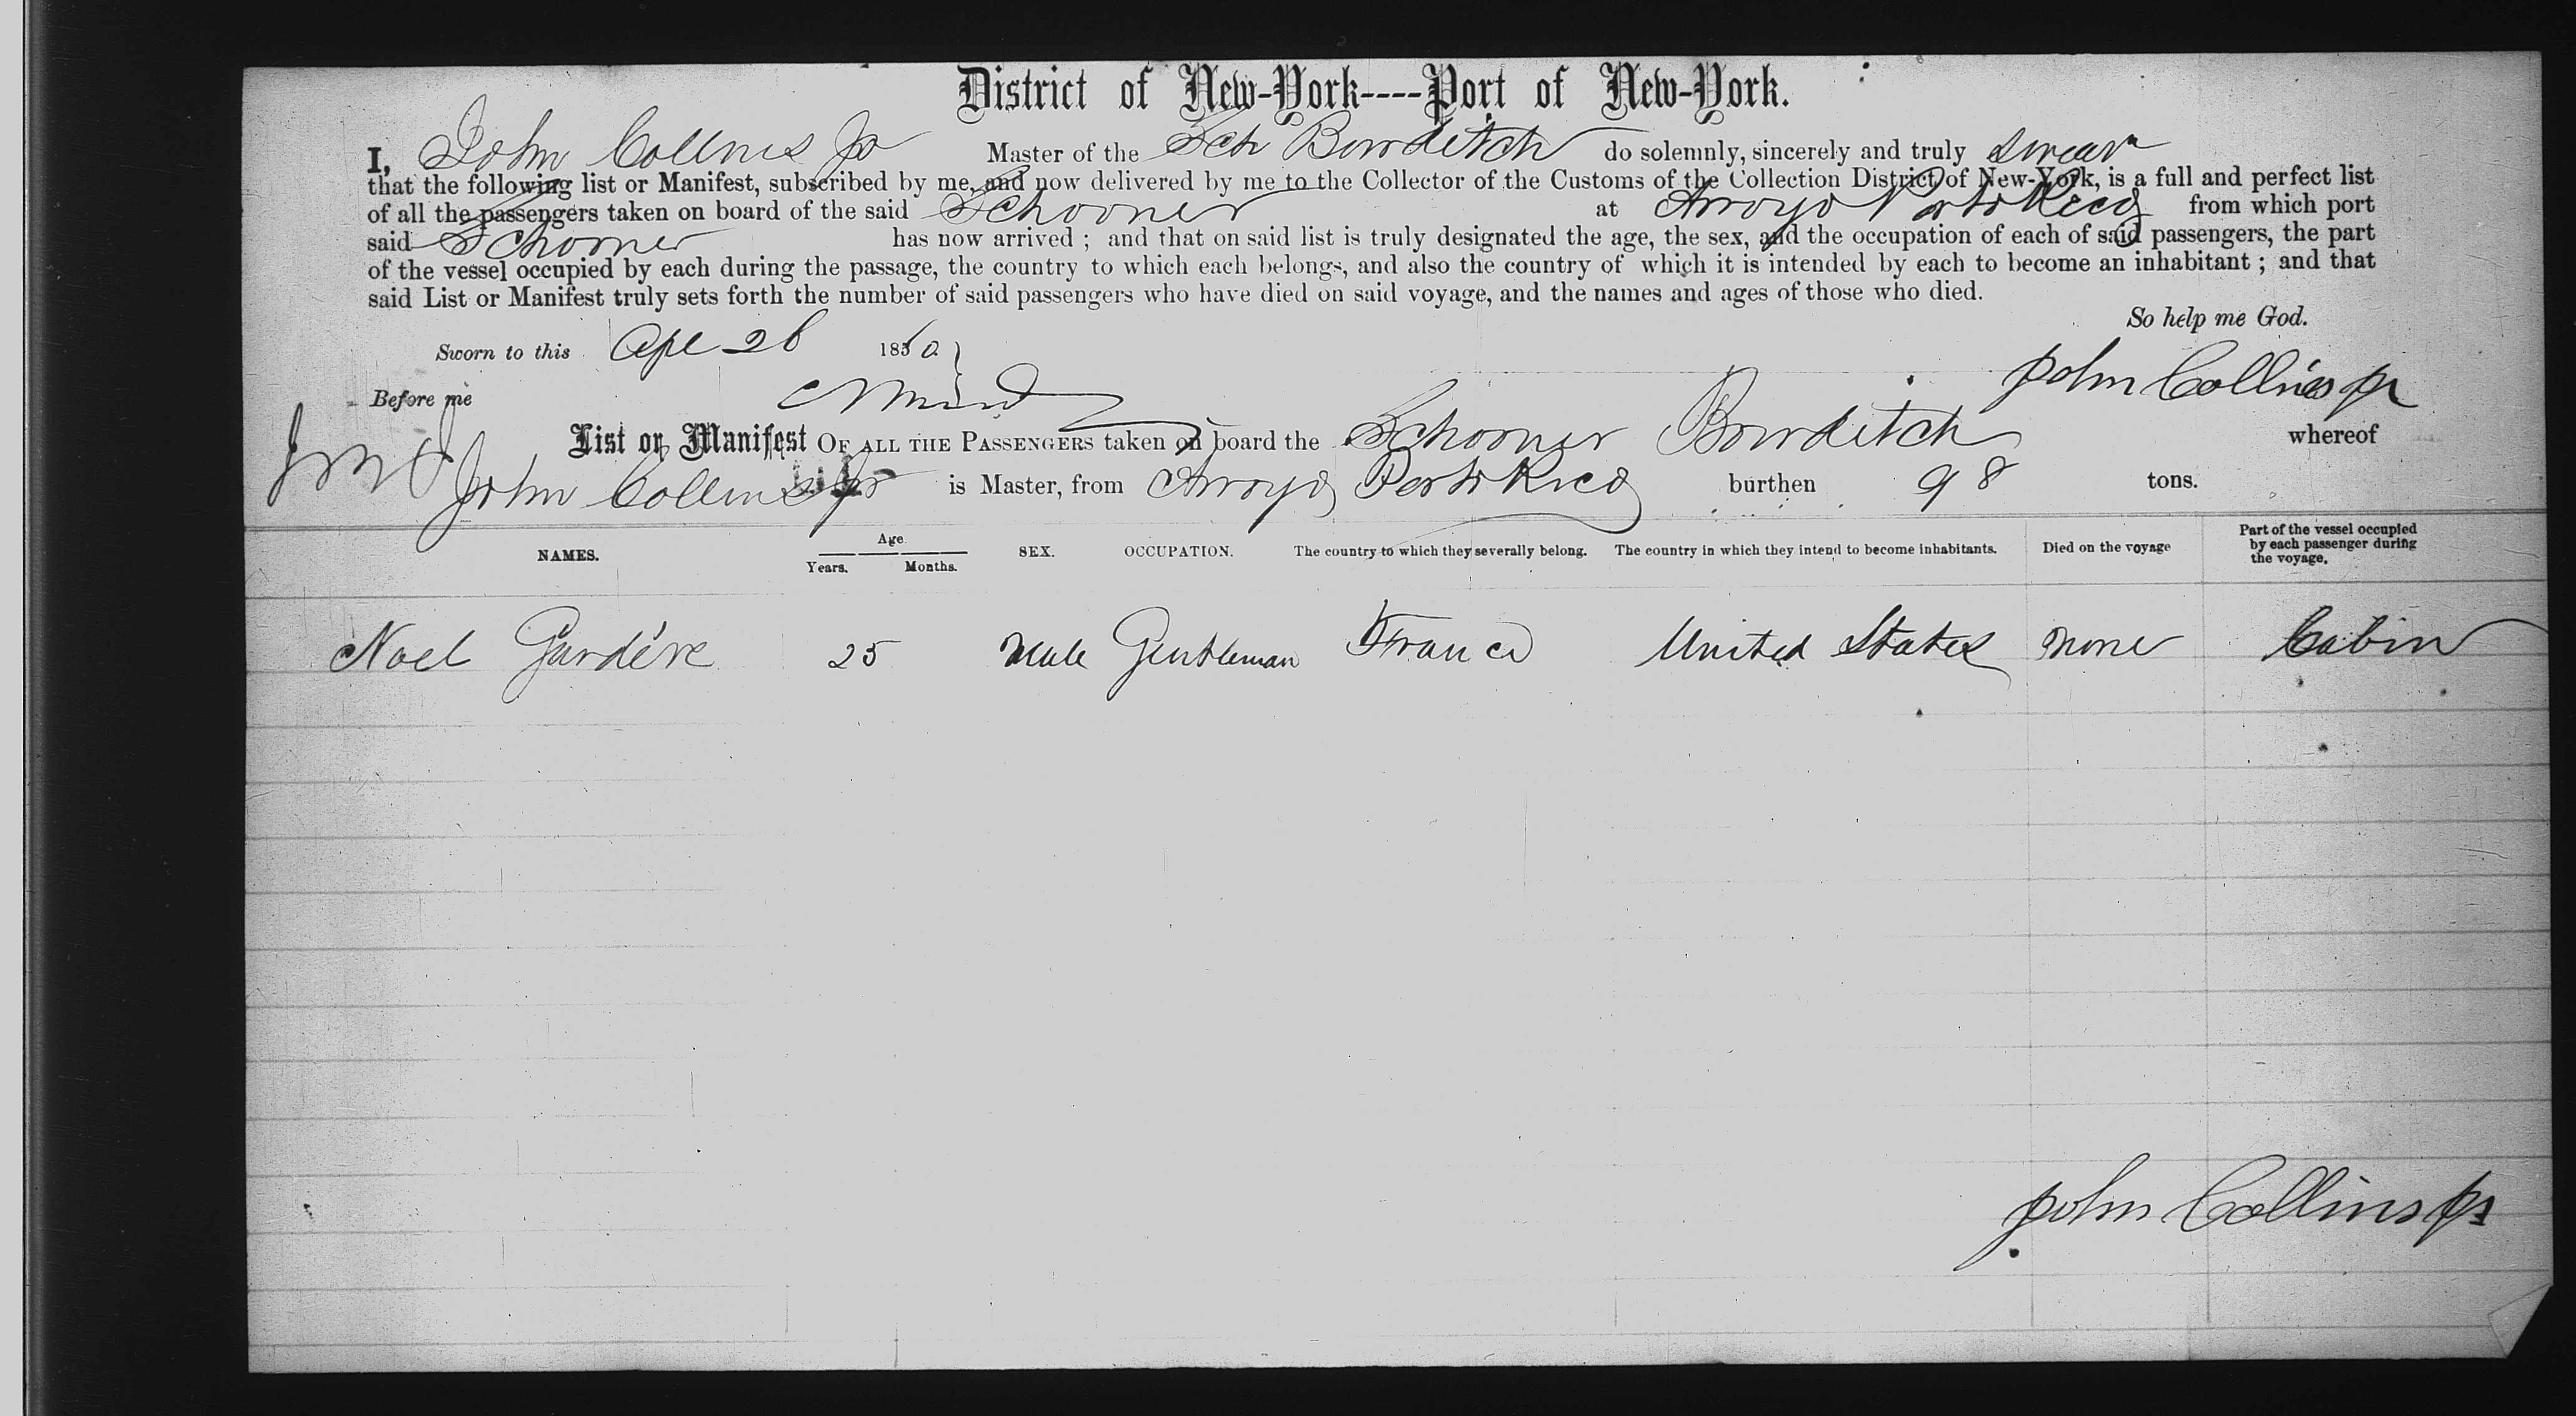 District of New-York----Port of New-York.
I, John Collins Jr Master of the Sch Bowditch do solemnly, sincerely and truly swear
that the following list or Manifest, subscribed by me, and now delivered by me to the Collector of the Customs of the Collection District of New-York, is a full and perfect list
of all the passengers taken on board of the said Schooner at Arroyo Porto Rico from which port
said Schooner has now arrived ; and that on said list is truly designated the age, the sex, and the occupation of each of said passengers, the part
of the vessel occupied by each during the passage, the country to which each belongs, and also the country of which it is intended by each to become an inhabitant ; and that
said List or Manifest truly sets forth the number of said passengers who have died on said voyage, and the names and ages of those who died.
So help me God.
Sworn to this Apl 26 1860
John Collins jr
Before me
List or Manifest OF ALL THE PASSENGERS taken on board the Schooner Bowditch whereof
John Collins Jr is Master, from Arroyo Porto Rico burthen 98 tons.
NAMES. Age Years. Months. SEX. OCCUPATION. The country to which they severally belong. The country in which they intend to become inhabitants. Died on the voyage Part of the vessel occupied by each passenger during the voyage.
Noel Gardère 25 Male Gentleman France United States None Cabin
John Collins jr